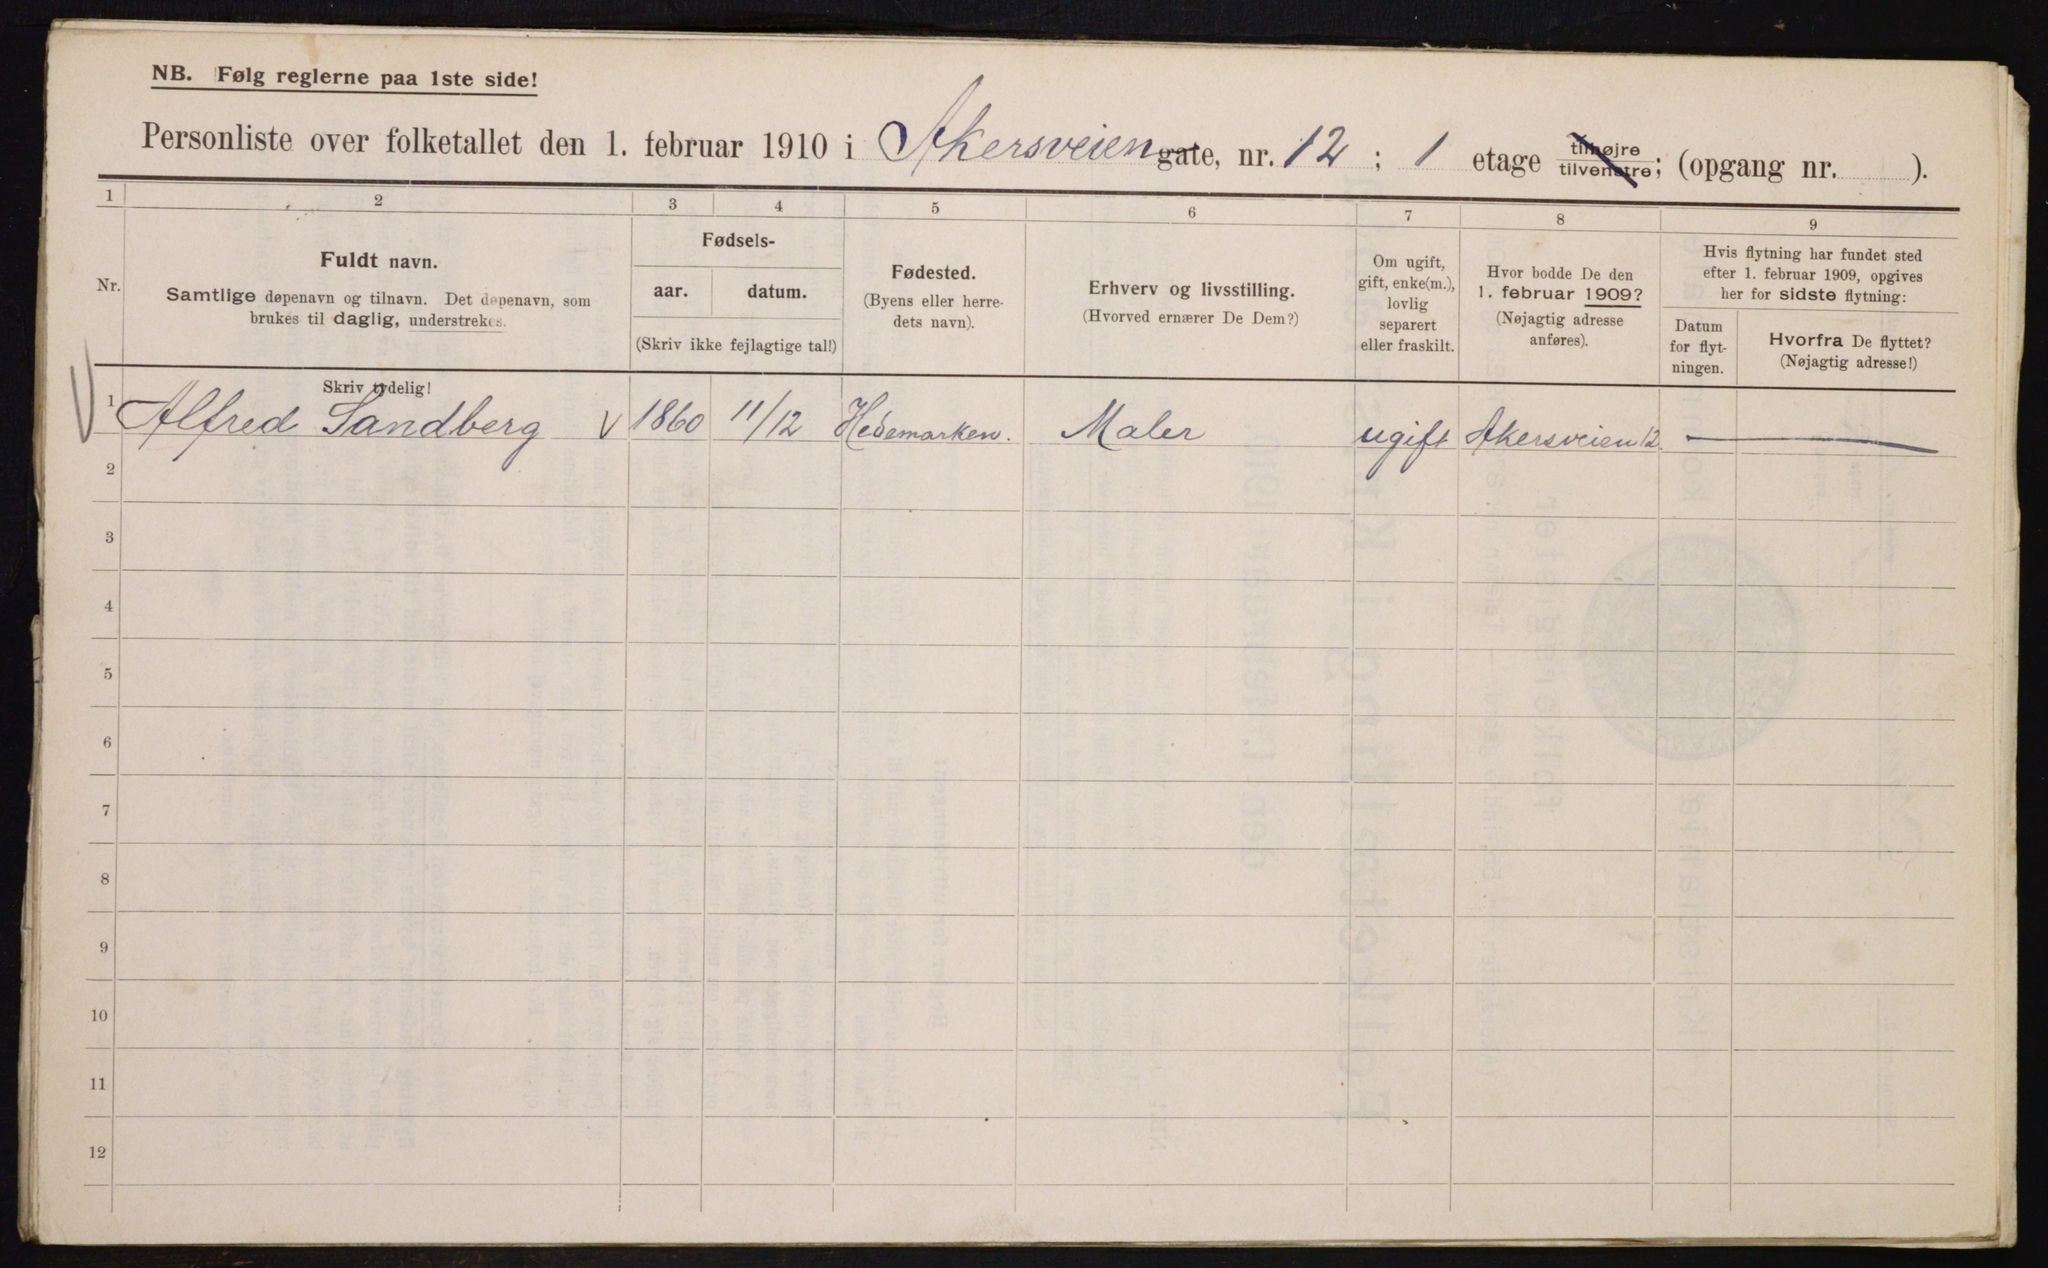 NB. Følg reglerne paa 1ste side!
Personliste over folketallet den 1. februar 1910 i Akersveien gate, nr. 12; 1 etage tilhøjre tilvenstre; (opgang nr. ).
1 2 3 4 5 6 7 8 9
Nr.
Fuldt navn.
Samtlige døpenavn og tilnavn. Det døpenavn, som
brukes til daglig, understrekes.
Skriv tydelig!
Fødsels-
aar. datum.
(Skriv ikke fejlagtige tal!)
Fødested.
(Byens eller herre-
dets navn).
Erhverv og livsstilling.
(Hvorved ernærer De Dem?)
Om ugift,
gift, enke(m.),
lovlig
separert
eller fraskilt.
Hvor bodde De den
1. februar 1909?
(Nøjagtig adresse
anføres).
Hvis flytning har fundet sted
efter 1. februar 1909, opgives
her for sidste flytning:
Datum
for flyt-
ningen.
Hvorfra De flyttet?
(Nøjagtig adresse!)
1 Alfred Sandberg V 1860 11/12 Hedemarken. Maler ugift Akersveien 12. —
2
3
4
5
6
7
8
9
10
11
12